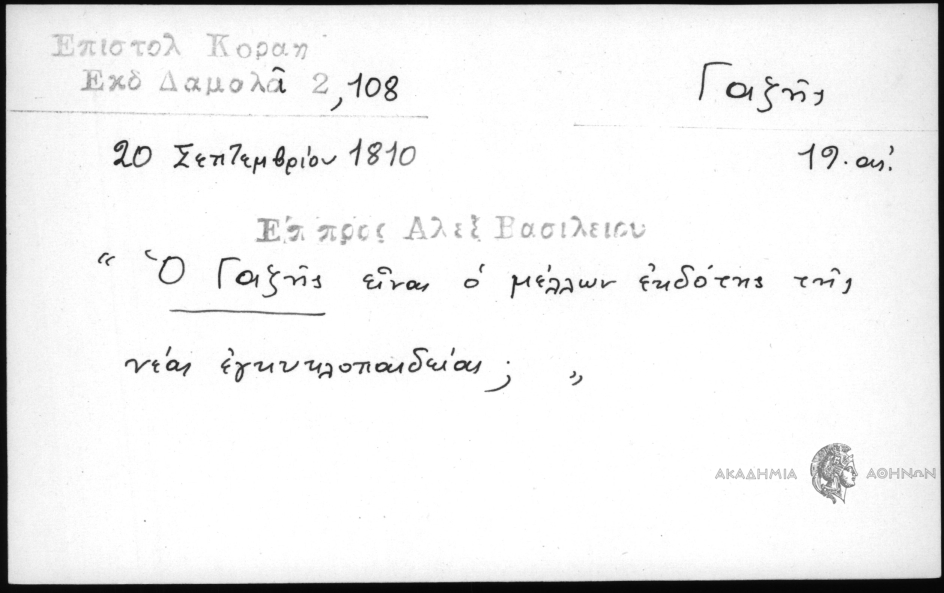 Επιστολ Κοραη
Εκδ Δαμολᾶ 2,108
Γαζῆς
20 Σεπτεμβρίου 1810
19. αἰ.
Επ προς Αλεξ Βασιλειου
“ Ὁ Γαζῆς εἶναι ὁ μέλλων ἐκδότης τῆς
νέας ἐγκυκλοπαιδείας; ”
ΑΚΑΔΗΜΙΑ ΑΘΗΝΩΝ